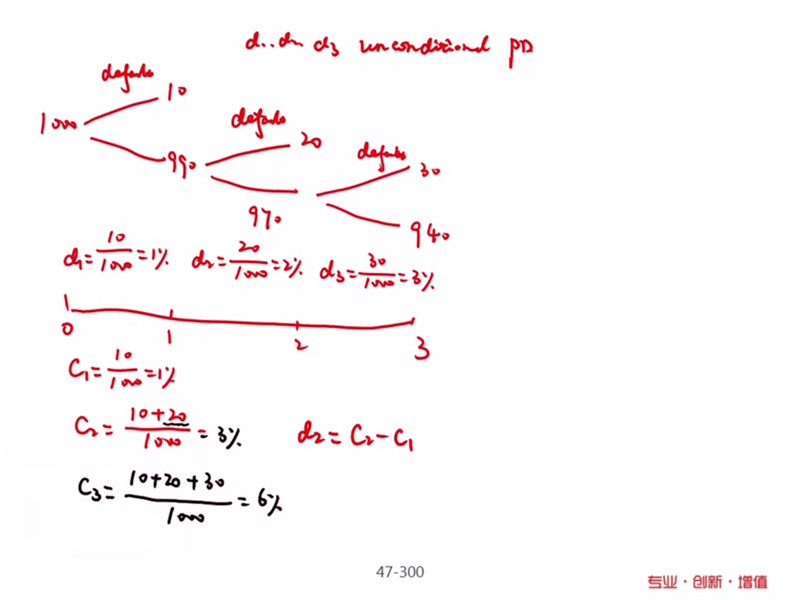 d₁ d₂ d₃ unconditional PD
default 10
1000
default 20
990
default 30
970
940
d₁ = 10/1000 = 1% d₂ = 20/1000 = 2% d₃ = 30/1000 = 3%
0 1 2 3
C₁ = 10/1000 = 1%
C₂ = 10+20/1000 = 3% d₂ = C₂ - C₁
C₃ = 10+20+30/1000 = 6%
47-300
专业·创新·增值